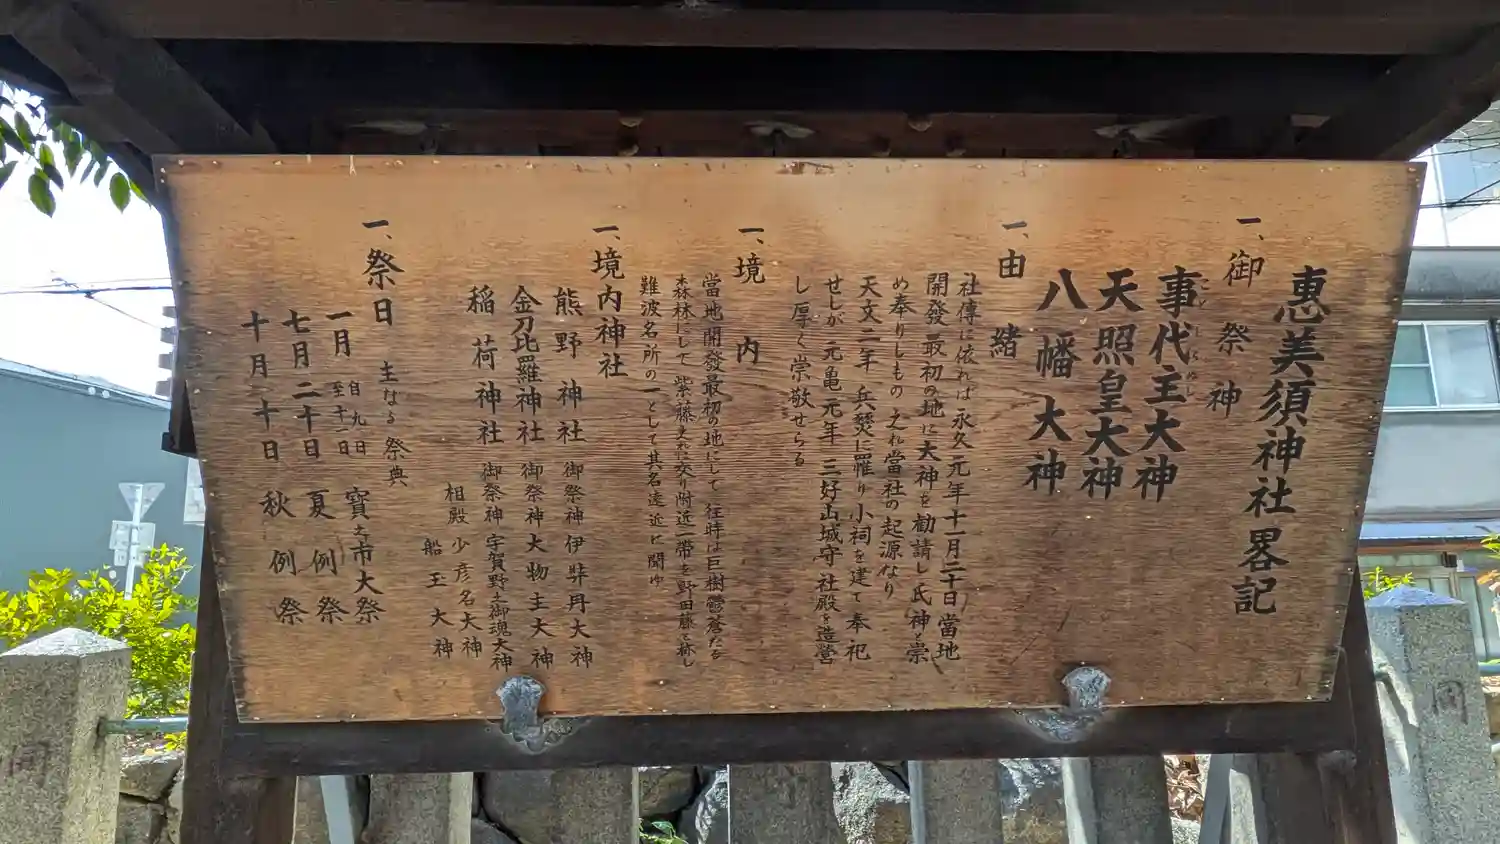 惠美須神社畧記
一、御祭神
事代主大神
ことしろぬし
天照皇大神
八幡大神
一、由緒
社傳に依れば永久元年十一月二十日當地
開發最初の地に大神を勧請し氏神と崇
め奉りしもの之れ當社の起源なり
天文二年兵燹に罹り小祠を建て奉祀
せしが元亀元年三好山城守社殿を造營
し厚く崇敬せらる
一、境内
當地開發最初の地にして往時は巨樹鬱蒼たる
森林にして紫藤之れに交り附近一帶を野田藤と称し
難波名所の一として其名遠近に聞ゆ
一、境内神社
熊野神社 御祭神伊弉冉大神
金刀比羅神社 御祭神大物主大神
稲荷神社 御祭神宇賀野之御魂大神
相殿少彦名大神
船玉大神
一、祭日 主なる祭典
一月 自九日 至十一日 寶之市大祭
七月二十日 夏例祭
十月二十日 秋例祭